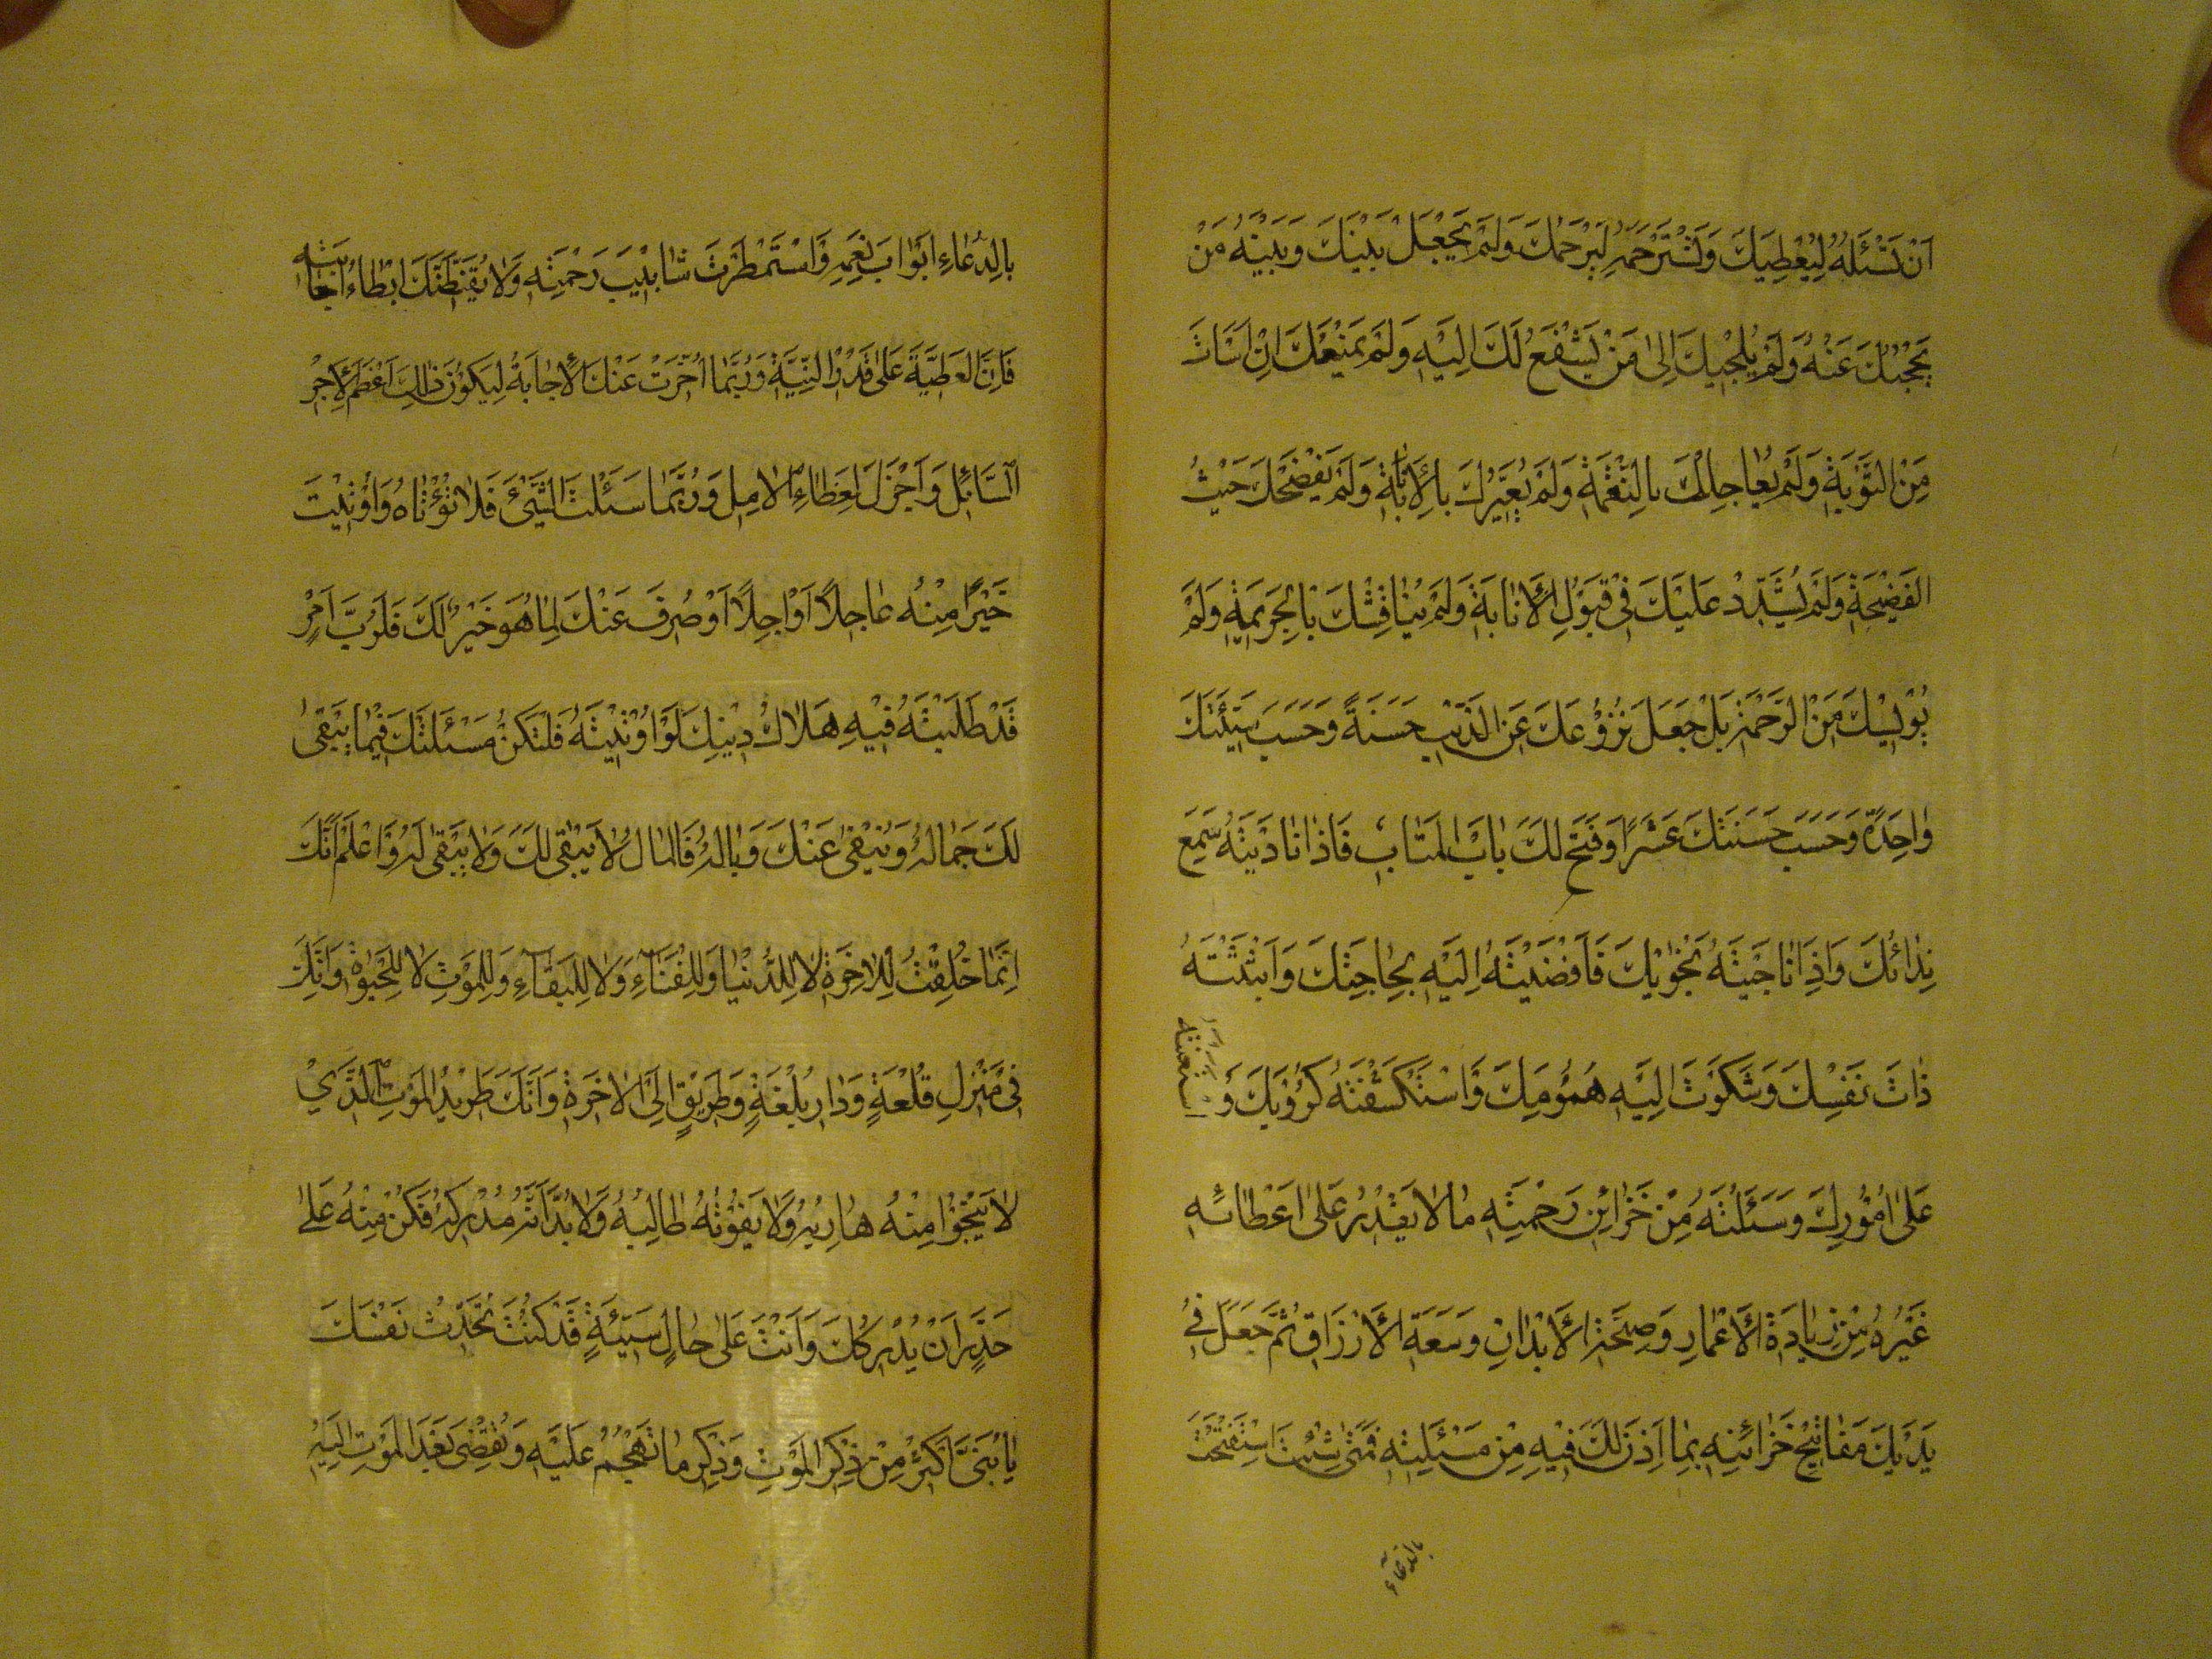 اَنْ تَسْئَلَهُ لِيُعْطِيَكَ وَتَسْتَرْحِمَهُ لِيَرْحَمَكَ وَلَمْ يَجْعَلْ بَيْنَكَ وَبَيْنَهُ مَنْ
يَحْجُبُكَ عَنْهُ وَلَمْ يُلْجِئْكَ اِلىٰ مَنْ يَشْفَعُ لَكَ اِلَيْهِ وَلَمْ يَمْنَعْكَ اِنْ اَسَأْتَ
مِنَ التَّوْبَةِ وَلَمْ يُعَاجِلْكَ بِالنِّقْمَةِ وَلَمْ يُعَيِّرْكَ بِالْاِنَابَةِ وَلَمْ يَفْضَحْكَ حَيْثُ
الْفَضِيْحَةِ وَلَمْ يُشَدِّدْ عَلَيْكَ فِىْ قَبُوْلِ الْاِنَابَةِ وَلَمْ يُنَاقِشْكَ بِالْجَرِيْمَةِ وَلَمْ
يُؤْيِسْكَ مِنَ الرَّحْمَةِ بَلْ جَعَلَ نُزُوْعَكَ عَنِ الذَّنْبِ حَسَنَةً وَحَسَبَ سَيِّئَتَكَ
وَاحِدَةً وَحَسَبَ حَسَنَتَكَ عَشْرًا وَفَتَحَ لَكَ بَابَ الْمَتَابِ فَاِذَا نَادَيْتَهُ سَمِعَ
نِدَائَكَ وَاِذَا نَاجَيْتَهُ نَجْوٰيكَ فَاَفْضَيْتَهُ اِلَيْهِ بِحَاجَتِكَ وَاَبْثَثْتَهُ
ذَاتَ نَفْسِكَ وَشَكَوْتَ اِلَيْهِ هُمُوْمَكَ وَاسْتَكْشَفْتَهُ كُرُوْبَكَ وَاسْتَعَنْتَهُ
عَلىٰ اُمُوْرِكَ وَسَئَلْتَهُ مِنْ خَزَائِنِ رَحْمَتِهِ مَا لَا يَقْدِرُ عَلىٰ اِعْطَائِهِ
غَيْرُهُ مِنْ زِيَادَةِ الْاَعْمَارِ وَصِحَّةِ الْاَبْدَانِ وَسَعَةِ الْاَرْزَاقِ ثُمَّ جَعَلَ فِىْ
يَدَيْكَ مَفَاتِيْحَ خَزَائِنِهِ بِمَا اَذِنَ لَكَ فِيْهِ مِنْ مَسْئَلَتِهِ فَمَتىٰ شِئْتَ اسْتَفْتَحْتَ
بالدعاء
بِالدُّعَاءِ اَبْوَابَ نِعَمِهِ وَاسْتَمْطَرْتَ شَابِيْبَ رَحْمَتِهِ وَلَا يُقَنِّطَنَّكَ اِبْطَاءُ اِجَابَتِهِ
فَاِنَّ الْعَطِيَّةَ عَلىٰ قَدْرِ النِّيَّةِ وَرُبَّمَا اُخِّرَتْ عَنْكَ الْاِجَابَةُ لِيَكُوْنَ ذٰلِكَ اَعْظَمَ لِاَجْرِ
السَّائِلِ وَاَجْزَلَ لِعَطَاءِ الْاٰمِلِ وَرُبَّمَا سَئَلْتَ الشَّيْءَ فَلَا تُؤْتَاهُ وَاُوْتِيْتَ
خَيْرًا مِنْهُ عَاجِلًا اَوْ اٰجِلًا اَوْ صُرِفَ عَنْكَ لِمَا هُوَ خَيْرٌ لَكَ فَلَرُبَّ اَمْرٍ
قَدْ طَلَبْتَهُ فِيْهِ هَلَاكُ دِيْنِكَ لَوْ اُوْتِيْتَهُ فَلْتَكُنْ مَسْئَلَتُكَ فِيْمَا يَبْقىٰ
لَكَ جَمَالُهُ وَيُنْفىٰ عَنْكَ وَبَالُهُ فَالْمَالُ لَا يَبْقىٰ لَكَ وَلَا تَبْقىٰ لَهُ وَاعْلَمْ اَنَّكَ
اِنَّمَا خُلِقْتَ لِلْاٰخِرَةِ لَا لِلدُّنْيَا وَلِلْفَنَاءِ وَلَا لِلْبَقَاءِ وَلِلْمَوْتِ لَا لِلْحَيٰوةِ وَاَنَّكَ
فِىْ مَنْزِلِ قُلْعَةٍ وَدَارِ بُلْغَةٍ وَطَرِيْقٍ اِلَى الْاٰخِرَةِ وَاَنَّكَ طَرِيْدُ الْمَوْتِ الَّذِىْ
لَا يَنْجُوْا مِنْهُ هَارِبُهُ وَلَا يَفُوْتُهُ طَالِبُهُ وَلَا بُدَّ اَنَّهُ مُدْرِكُهُ فَكُنْ مِنْهُ عَلىٰ
حَذَرٍ اَنْ يُدْرِكَكَ وَاَنْتَ عَلىٰ حَالٍ سَيِّئَةٍ قَدْ كُنْتَ تُحَدِّثُ نَفْسَكَ
يَا بُنَىَّ اَكْثِرْ مِنْ ذِكْرِ الْمَوْتِ وَذِكْرِ مَا تَهْجُمُ عَلَيْهِ وَتُفْضِىْ بَعْدَ الْمَوْتِ اِلَيْهِ